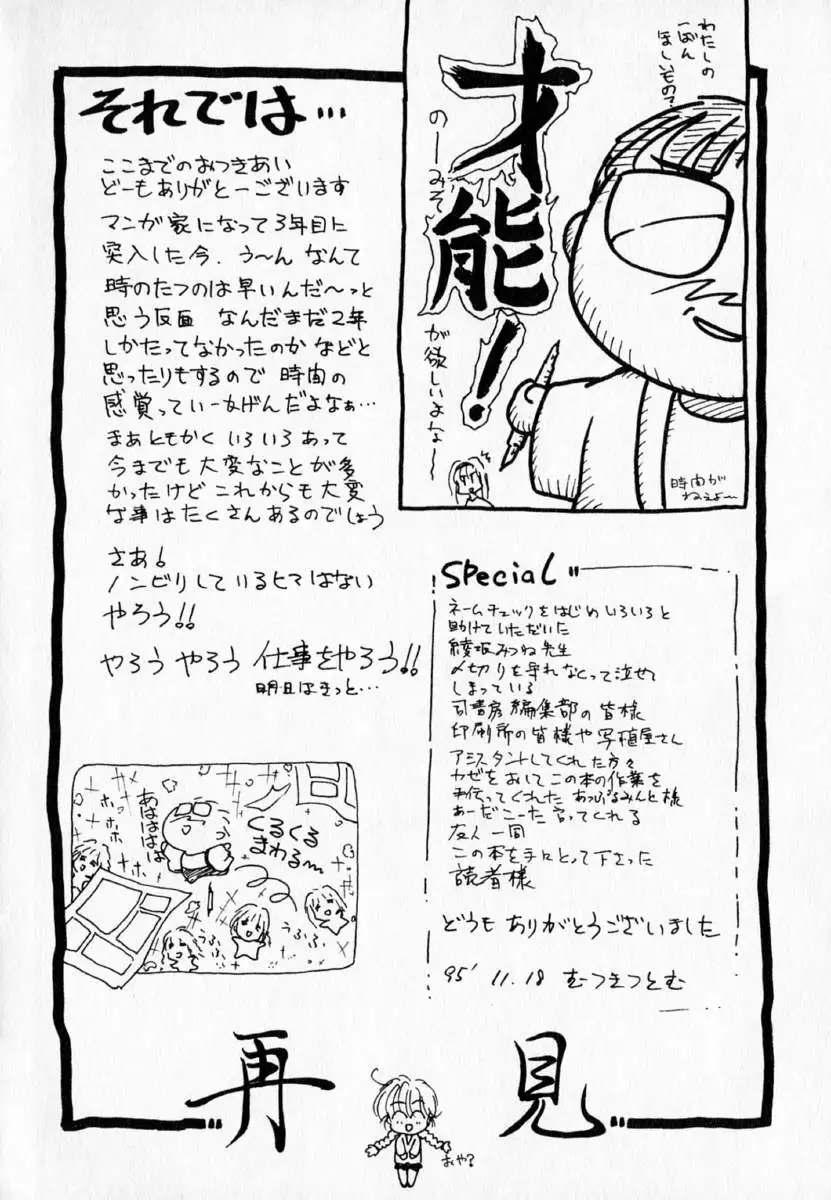 わたしの
一ばん
ほしいもの?
才能!
のーみそ
が欲しいよな〜
時間が
ねぇよ〜
それでは…
ここまでのおつきあい
どーもありがとーございます
マンガ家になって3年目に
突入した今、う〜ん なんて
時のたつのは早いんだ〜っと
思う反面 なんだまだ2年
しかたってなかったのか などと
思ったりもするので 時間の
感覚っていー加減だよなぁ…
まぁともかく いろいろあって
今までも大変なことが多
かったけど これからも大変
な事はたくさんあるのでしょう
さあ!
ノンビリしているヒマはない
やろう!!
やろう やろう 仕事をやろう!!
明日はきっと…
Special
ネームチェックをはじめいろいろと
助けていただいた
綾坂みつね先生
〆切りを守れなくって泣せて
しまっている
司書房編集部の皆様
印刷所の皆様や写植屋さん
アシスタントしてくれた方々
カゼをおしてこの本の作業を
手伝ってくれた あっぷるみんと様
あーだこーた言ってくれる
友人一同
この本を手にとって下さった
読者様
どうも ありがとうございました
95' 11.18 むつきつとむ
あはははは
ホホホ
ホホホ
くるくる
まわる〜
うふふ
うふふ
再見
おや?